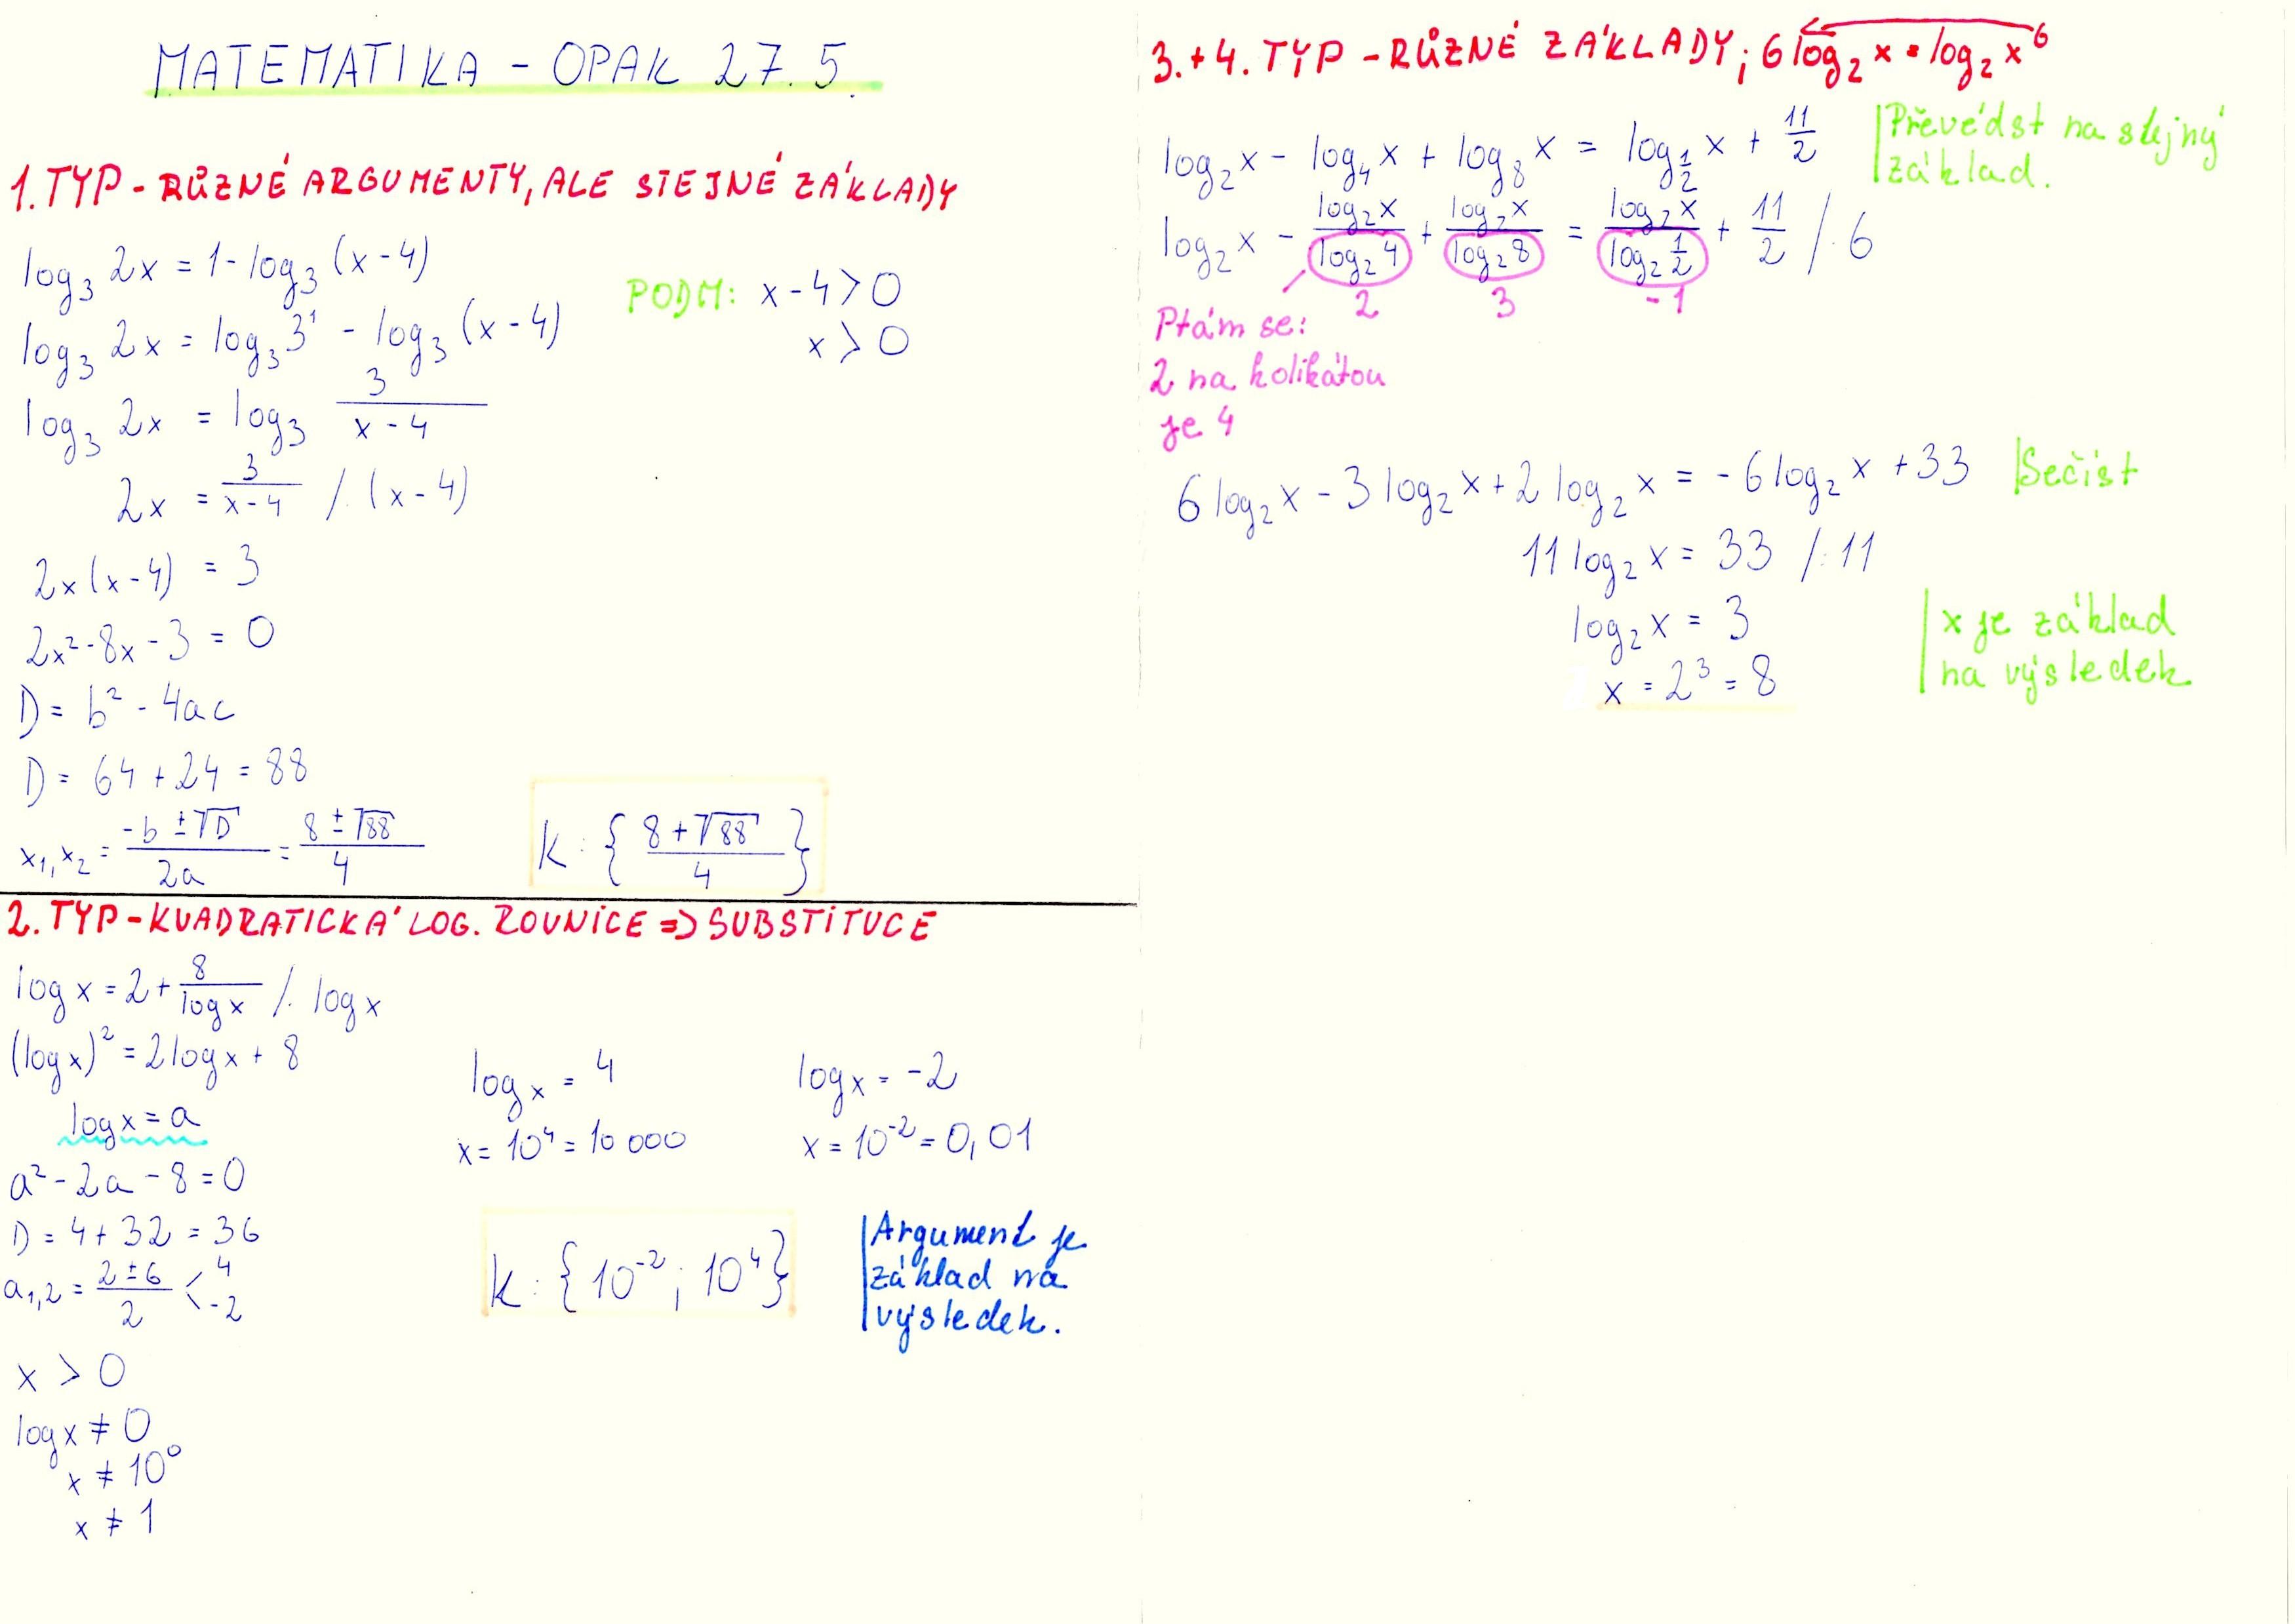 MATEMATIKA - OPAK 27.5.
1. TYP - RŮZNÉ ARGUMENTY, ALE STEJNÉ ZÁKLADY
log₃ 2x = 1 - log₃ (x - 4)
PODM: x - 4 > 0
x > 0
log₃ 2x = log₃ 3¹ - log₃ (x - 4)
log₃ 2x = log₃ 3/(x - 4)
2x = 3/(x - 4) /· (x - 4)
2x (x - 4) = 3
2x² - 8x - 3 = 0
D = b² - 4ac
D = 64 + 24 = 88
x₁, x₂ = (-b ± √D)/2a = (8 ± √88)/4
K: { (8 + √88)/4 }
2. TYP - KVADRATICKÁ LOG. ROVNICE => SUBSTITUCE
log x = 2 + 8/log x /· log x
(log x)² = 2 log x + 8
log x = a
a² - 2a - 8 = 0
D = 4 + 32 = 36
a₁,₂ = (2 ± 6)/2 < 4
-2
x > 0
log x ≠ 0
x ≠ 10⁰
x ≠ 1
log x = 4
x = 10⁴ = 10 000
log x = -2
x = 10⁻² = 0,01
K: {10⁻² ; 10⁴}
Argument je
základ na
výsledek.
3. + 4. TYP - RŮZNÉ ZÁKLADY; 6 log₂ x = log₂ x⁶
log₂ x - log₄ x + log₈ x = log_½ x + 11/2
Převédst na stejný
základ.
log₂ x - log₂ x/log₂ 4 + log₂ x/log₂ 8 = log₂ x/log₂ ½ + 11/2 /· 6
2 3 -1
Ptám se:
2 na kolikátou
je 4
6 log₂ x - 3 log₂ x + 2 log₂ x = - 6 log₂ x + 33
Sečíst
11 log₂ x = 33 /: 11
log₂ x = 3
x = 2³ = 8
x je základ
na výsledek